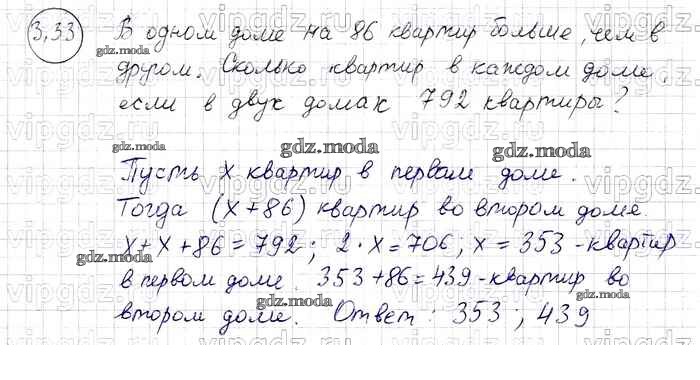 3,33 В одном доме на 86 квартир больше, чем в
другом. Сколько квартир в каждом доме,
если в двух домах 792 квартиры?
Пусть x квартир в первом доме.
Тогда (x+86) квартир во втором доме.
x+x+86=792; 2·x=706; x=353 -квартир
в первом доме. 353+86=439-квартир во
втором доме. Ответ: 353; 439
gdz.moda
gdz.moda
gdz.moda
gdz.moda
gdz.moda
gdz.moda
gdz.moda
gdz.moda
gdz.moda
gdz.moda
vipgdz.ru